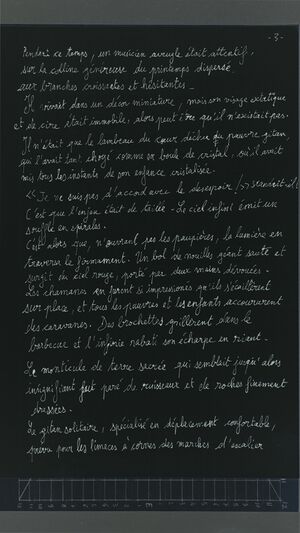 - 3 -
Pendant ce temps, un musicien aveugle était attentif,
sur la colline généreuse du printemps dispersé
aux branches croissetes et hésitantes -
Il vivait dans un décor miniature, mais son visage extatique
et de cire était immobile, alors peut être qu'il n'existait pas.
Il n'était que le lambeau du cœur déchu du pauvre gitan
qui l'avait tant choyé comme sa boule de cristal, où il avait
mis tous les instants de son enfance cristalisée.
<< Je ne suis pas d'accord avec le desespoir />> scandait-il.
C'est que l'enjeu était de taille - Le ciel infini émit un
souffle en spirales.
C'est alors que, n'ouvrant pas les paupières, la lumière en
traversa le firmament. Un bol de nouilles géant sauté et
surgit du ciel rouge, porté par deux mains dévouées.
Les chamanes en furent si impresionés qu'ils s'écaillèrent
sur place, et tous les pauvres et les enfants accoururent
des caravanes. Des brochettes grillèrent dans le
barbecue et l'infinie rabati son écharpe en riant.
Le monticule de terre sacrée qui semblait jusqu'alors
insignifiant fut paré de ruisseaux et de roches finement
dressées.
Le gitan solitaire, spécialisé en déplacement confortable,
pour les limaces à cornes des marches d'escalier